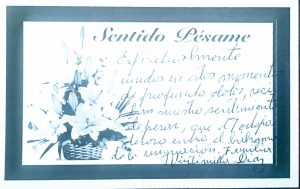 Sentido Pésame
Espiritualmente
unidos en estos momentos
de profundo dolor, reci-
ban nuestro sentimiento
de pesar, que el todopo-
deroso envíe el bálsamo
de la resignación. Familia
Díaz